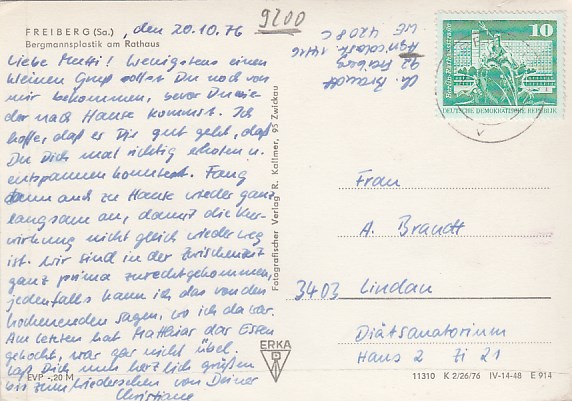 FREIBERG (Sa.)
Bergmannsplastik am Rathaus
, den 20.10.76
9200
Liebe Mutti! Wenigstens einen
kleinen Gruß sollst Du noch von
mir bekommen, bevor Du wie-
der nach Hause kommst. Ich
hoffe, daß es Dir gut geht, daß
Du Dich mal richtig erholen u.
entspannen konntest. Fang
dann auch zu Hause wieder ganz
langsam an, damit die Kur-
wirkung nicht gleich wieder weg
ist. Wir sind in der Zwischenzeit
ganz prima zurechtgekommen,
jedenfalls kann ich das von den
Wochenenden sagen, wo ich da war.
Am letzten hat Matthias das Essen
gekocht, war gar nicht übel.
Laß Dich nun herzlich grüßen
bis zum Wiedersehen von Deiner
Christiane
EVP -,20 M
Ch. Brandt
92 Freiberg
Agricolastr. 14/16
WE 420 8 C
Fotografischer Verlag R. Kallmer, 95 Zwickau
ERKA
10
DEUTSCHE DEMOKRATISCHE REPUBLIK
Frau
A. Brandt
3403 Lindau
Diätsanatorium
Haus 2 Zi 21
11310 K 2/26/76 IV-14-48 E 914